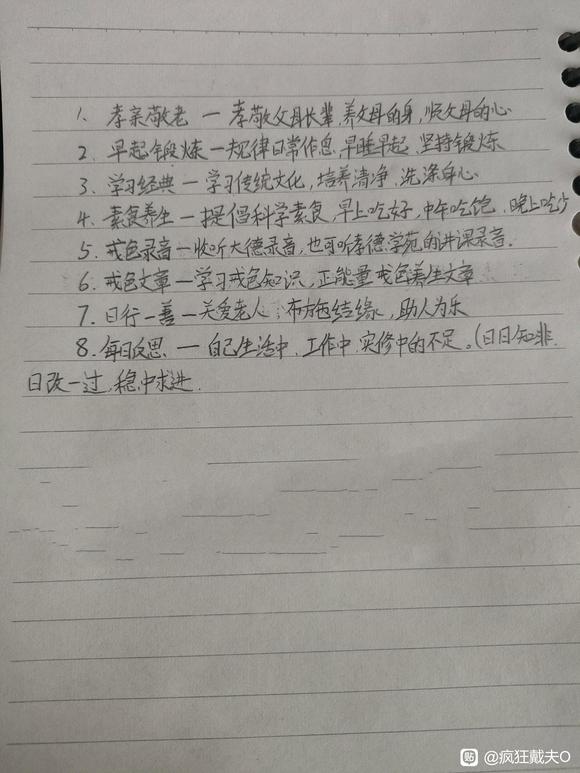 1、孝亲敬老 — 孝敬父母长辈,养父母的身,顺父母的心
2、早起锻炼 — 规律日常作息,早睡早起、坚持锻炼
3、学习经典 — 学习传统文化,培养清净、洗涤身心
4、素食养生 — 提倡科学素食,早上吃好,中午吃饱、晚上吃少
5、戒色录音 — 收听大德录音,也可听孝德学苑的讲课录音.
6、戒色文章 — 学习戒色知识,正能量戒色养生文章
7、日行一善 — 关爱老人、布施结缘,助人为乐
8、每日反思 — 自己生活中、工作中、实修中的不足。(日日知非、
日改一过,稳中求进.
贴 @疯狂戴夫O